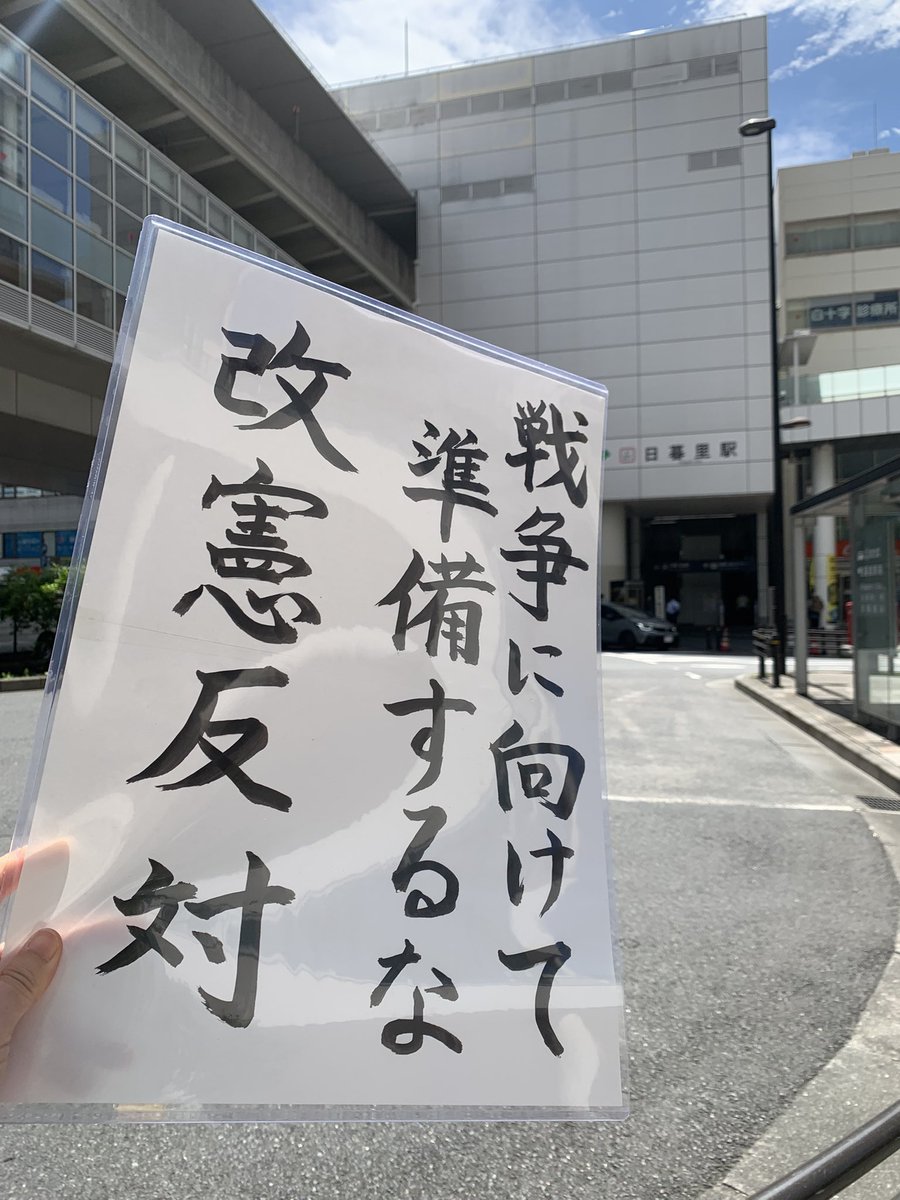 戦争に向けて
準備するな
改憲反対
日暮里駅
診療所